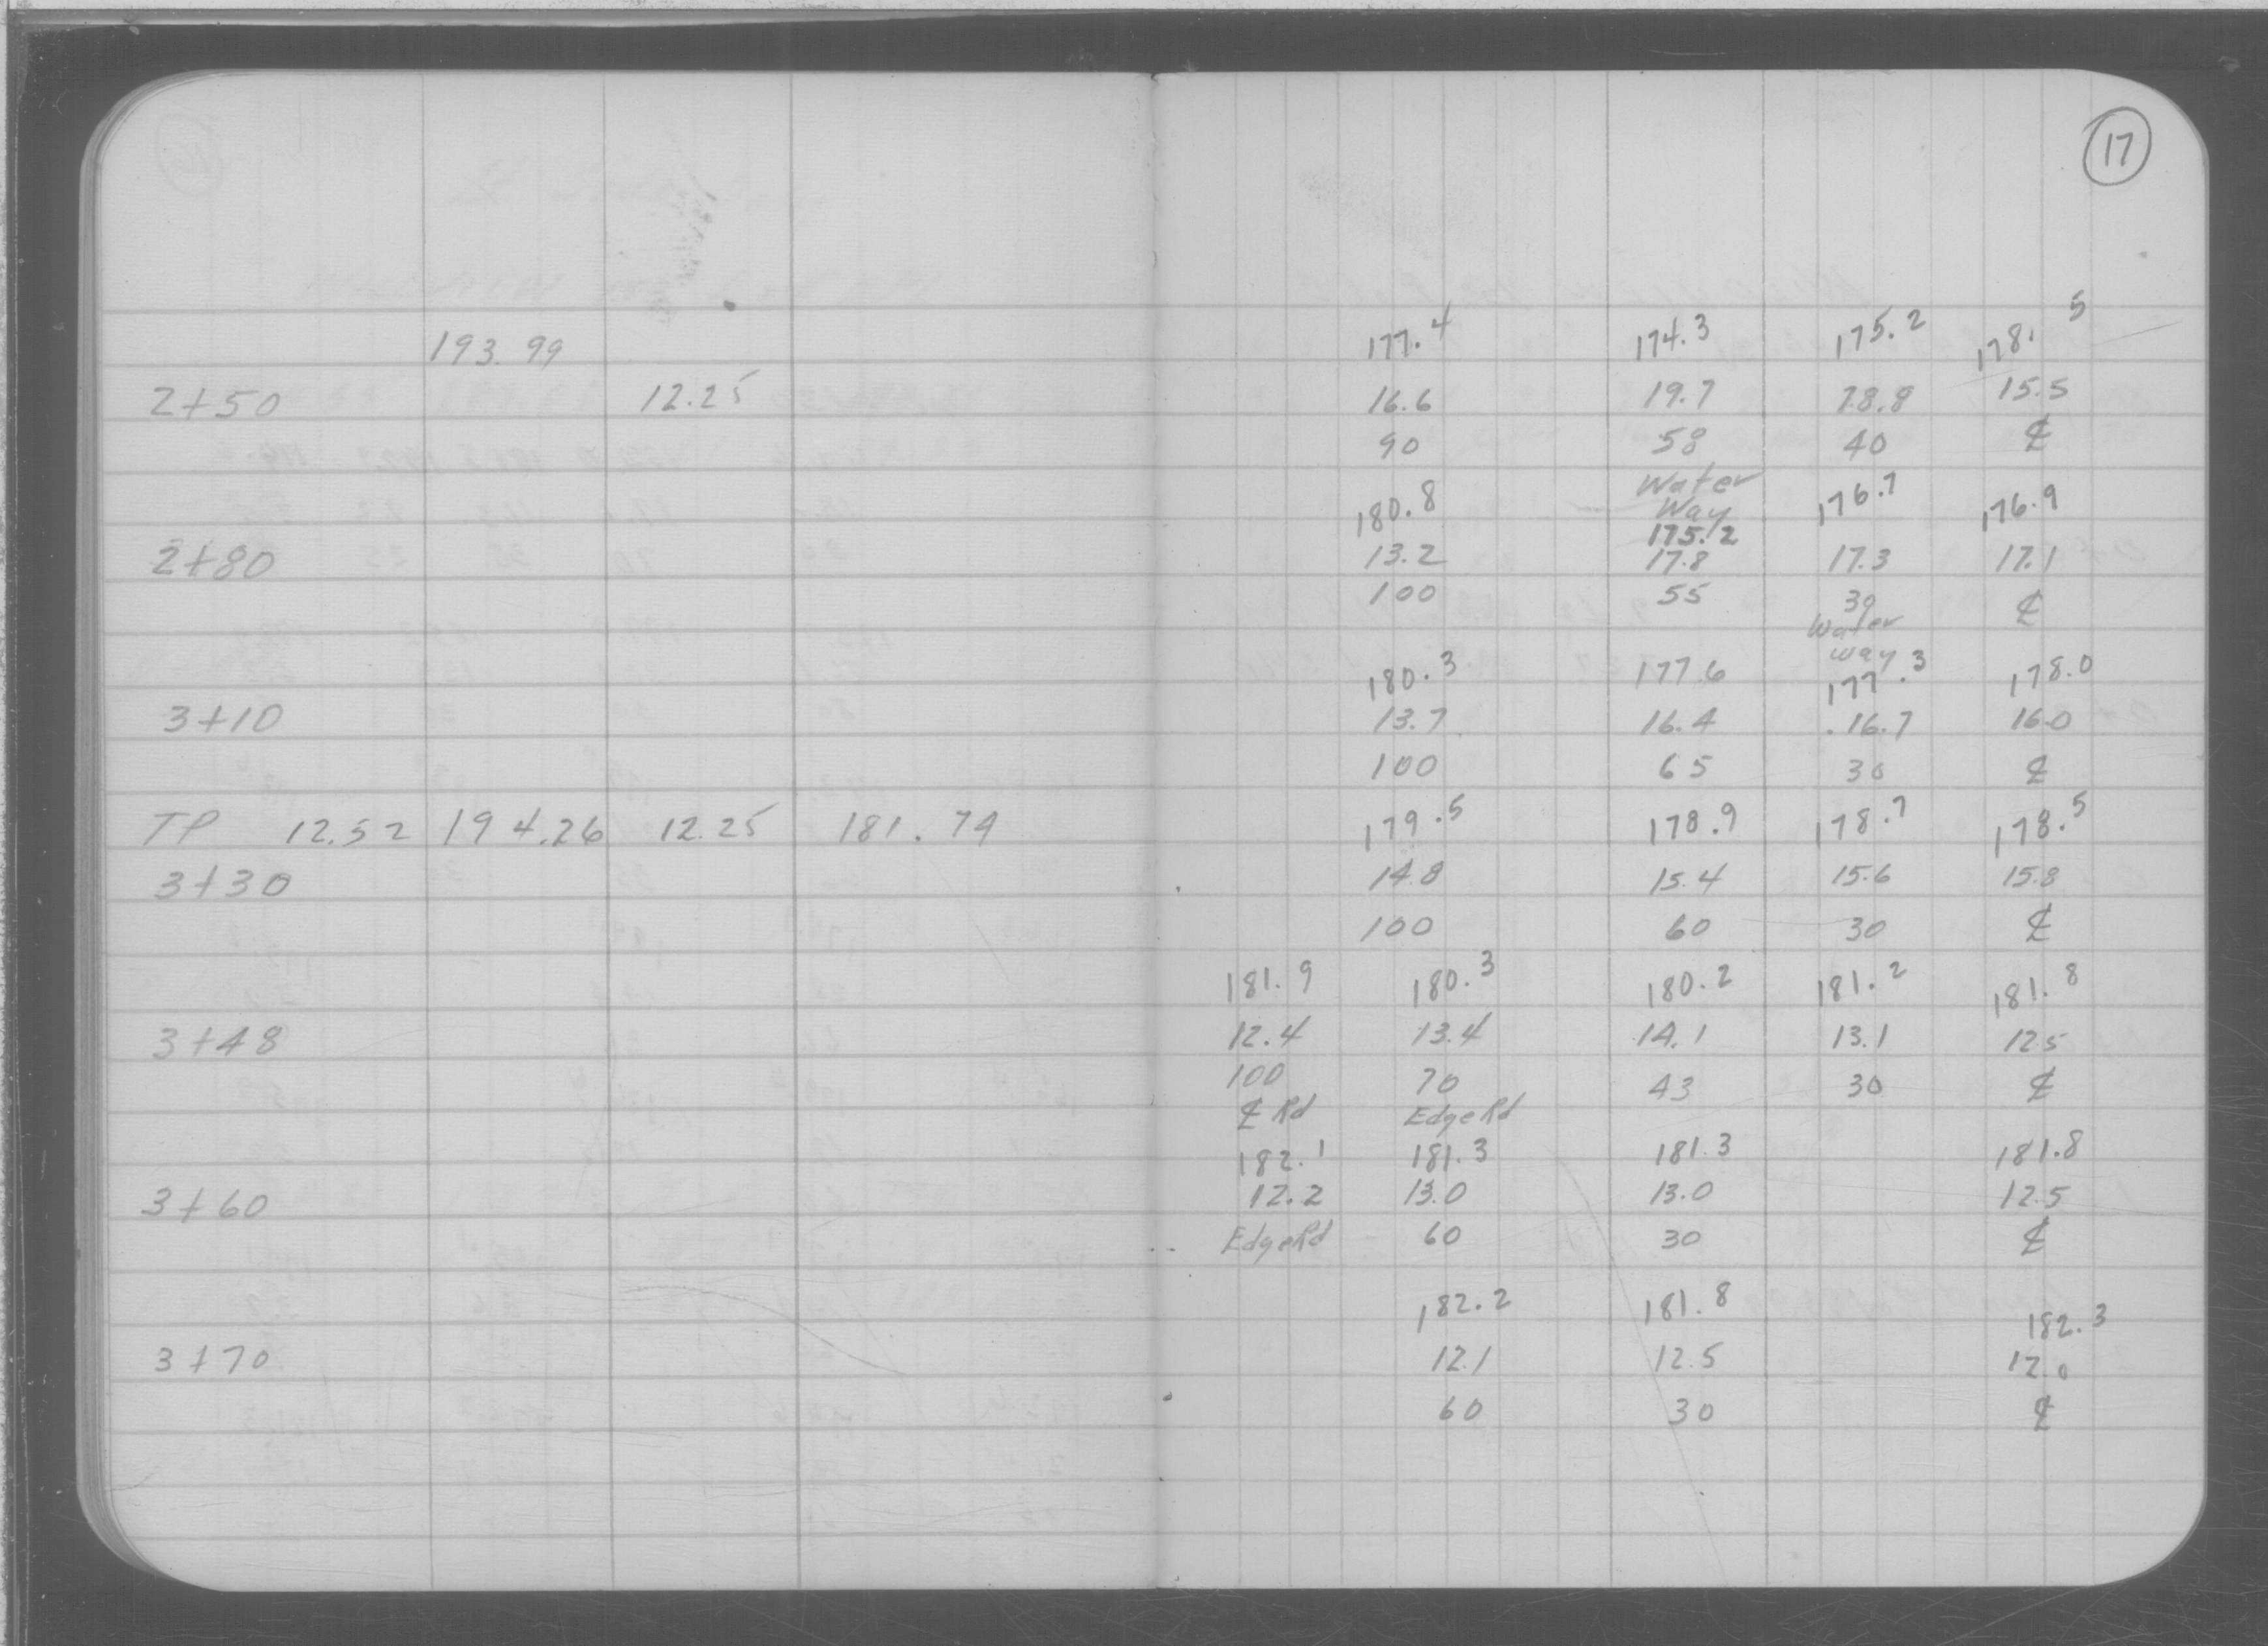 17
193.99 177.4 174.3 175.2 178.5
2+50 12.25 16.6 19.7 18.8 15.5
90 58 40 ℄
Water
Way
180.8 175.2 176.7 176.9
2+80 13.2 17.8 17.3 17.1
100 55 30 ℄
Water
way
180.3 177.6 177.3 178.0
3+10 13.7 16.4 16.7 16.0
100 65 30 ℄
TP 12.52 194.26 12.25 181.74 179.5 178.9 178.7 178.5
3+30 14.8 15.4 15.6 15.8
100 60 30 ℄
181.9 180.3 180.2 181.2 181.8
3+48 12.4 13.4 14.1 13.1 12.5
100 70 43 30 ℄
℄ Rd Edge Rd
182.1 181.3 181.3 181.8
3+60 12.2 13.0 13.0 12.5
Edge Rd 60 30 ℄
182.2 181.8 182.3
3+70 12.1 12.5 12.0
60 30 ℄